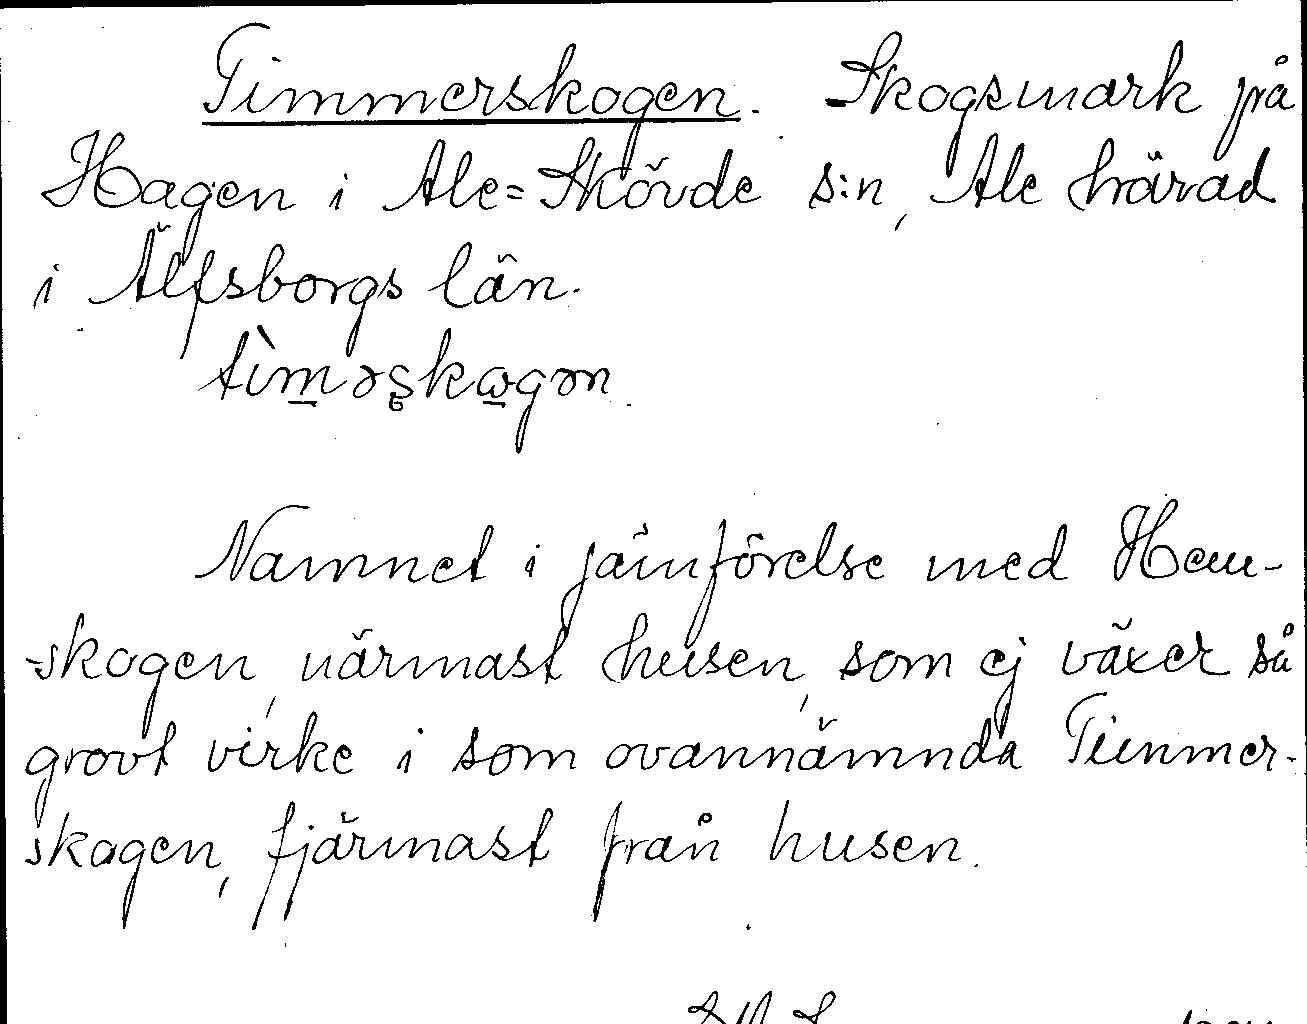 Timmerskogen. Skogsmark på
Hagen i Ale=Skövde s:n, Ale härad
i Älfsborgs län.
tìm̲əʂkɷ̲gən.
Namnet i jämförelse med Hem-
skogen, närmast husen, som ej växer så
grovt virke i som ovannämnda Timmer-
skogen, fjärmast från husen.